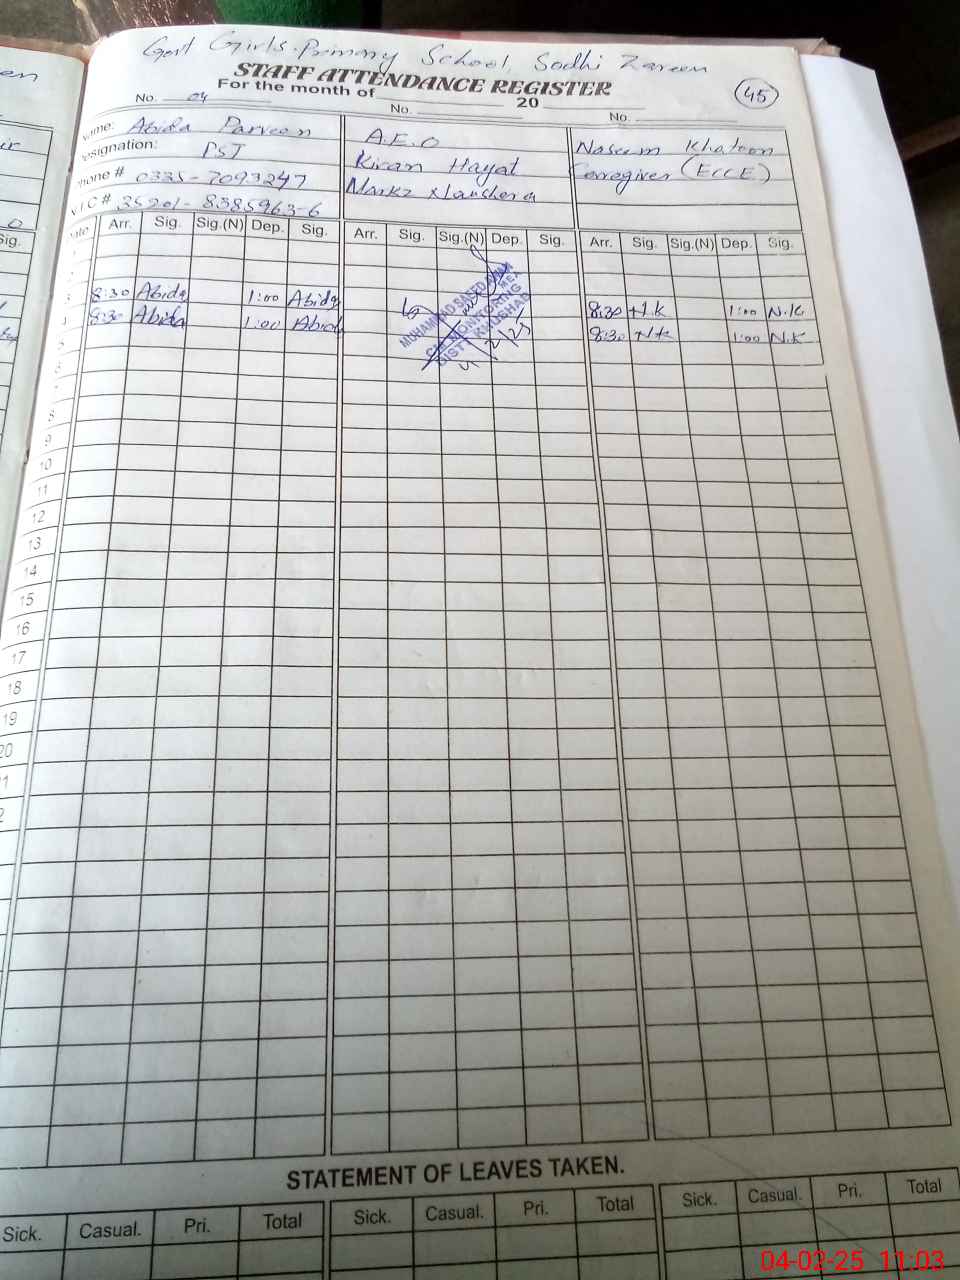 Govt Girls Primary School, Sodhi Zareen
STAFF ATTENDANCE REGISTER
45
For the month of 20
No. 04 No. No.
Name: Abida Parveen
Designation: PST
Phone # 0335-7093247
N.I.C # 35201-8385963-6
A.E.O
Kiran Hayat
Markz
Naseem Khatoon
Caregiver (ECCE)
Date Arr. Sig. Sig.(N) Dep. Sig. Arr. Sig. Sig.(N) Dep. Sig. Arr. Sig. Sig.(N) Dep. Sig.
3 8:30 Abida 1:00 Abida 8:30 N.K 1:00 N.K
4 8:30 Abida 1:00 Abida 8:30 N.K 1:00 N.K
MUHAMMAD SAEED
MEA
MONITORING
DISTT KHUSHAB
4/2/25
5
8
9
10
11
12
13
14
15
16
17
18
19
20
STATEMENT OF LEAVES TAKEN.
Sick. Casual. Pri. Total Sick. Casual. Pri. Total Sick. Casual. Pri. Total
04-02-25 11:03